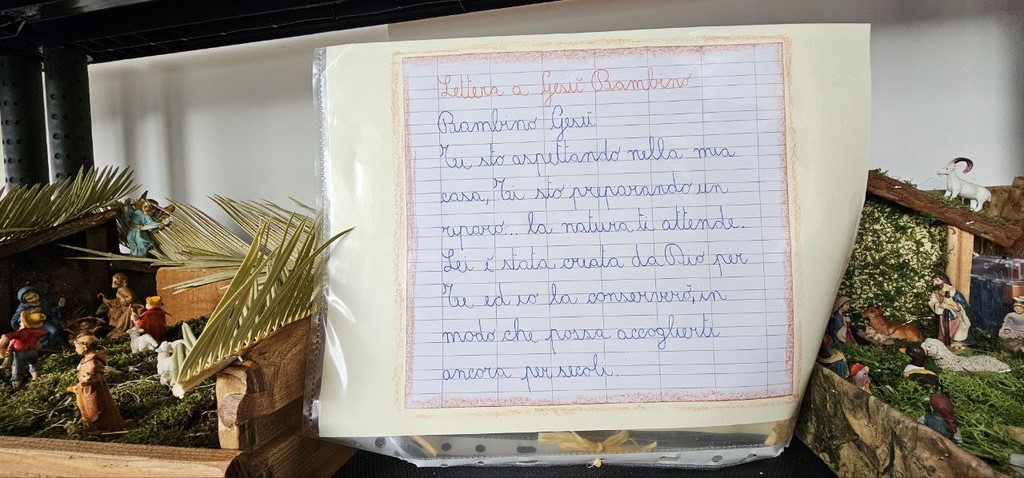 Lettera a Gesù Bambino
Bambino Gesù
Ti sto aspettando nella mia
casa, Ti sto preparando un
riparo... la natura ti attende.
Lei è stata creata da Dio per
Te ed io la conserverò, in
modo che possa accoglierti
ancora per secoli.